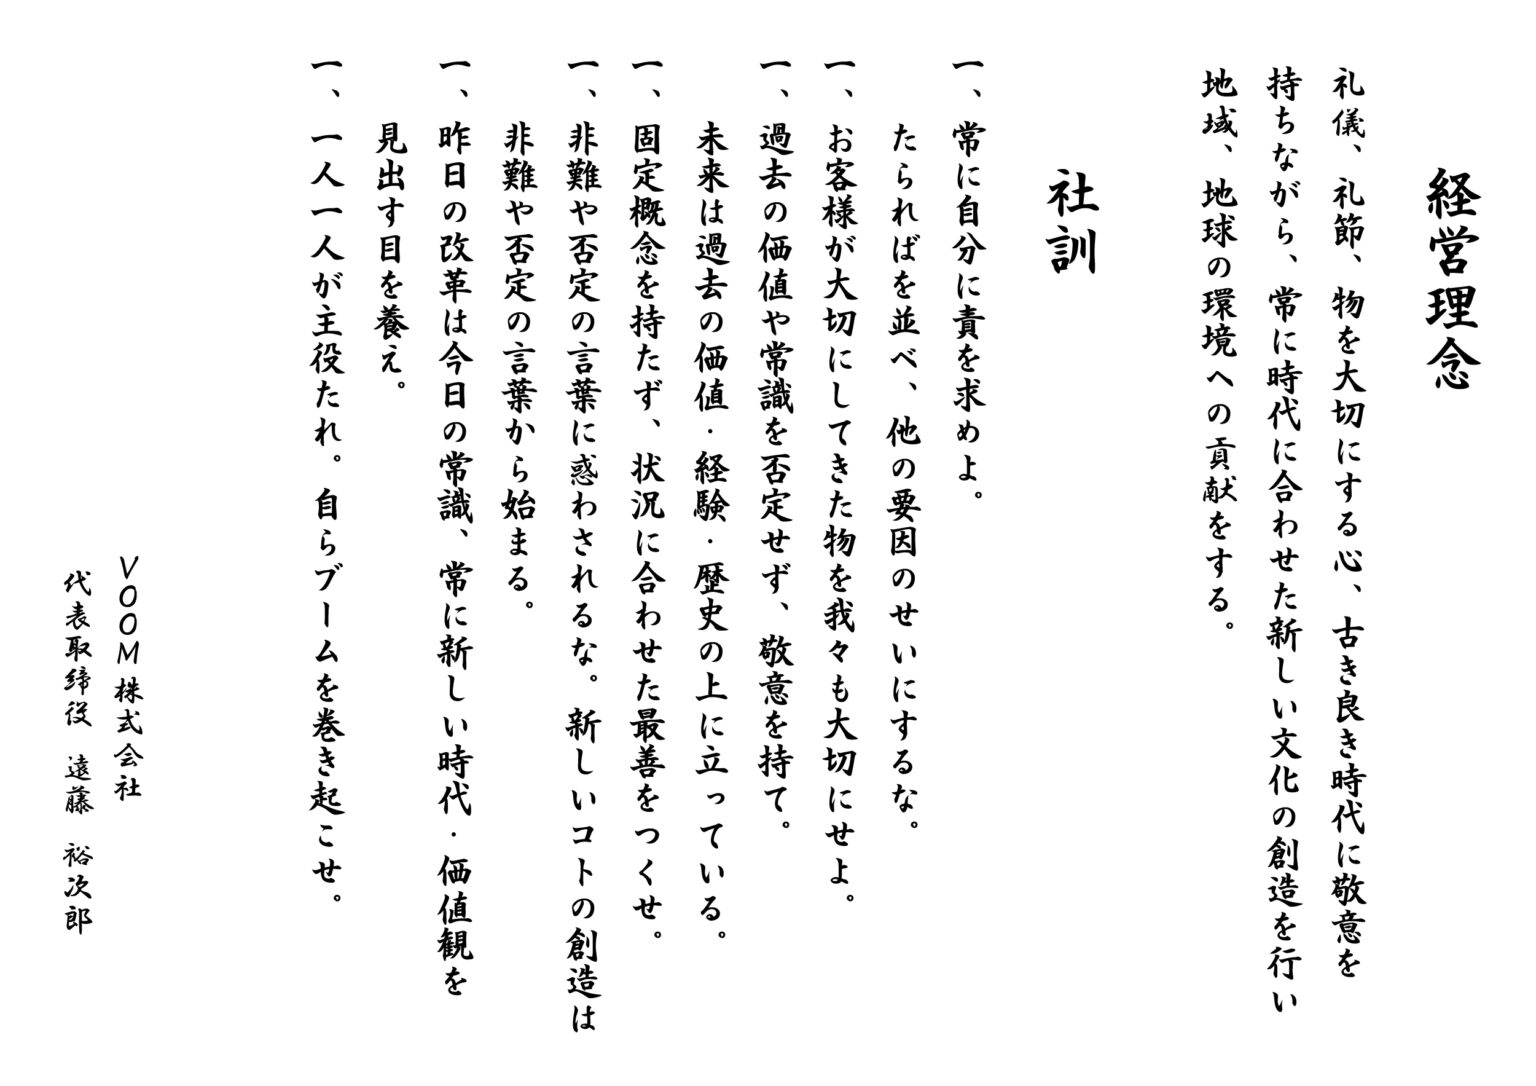 経営理念
礼儀、礼節、物を大切にする心、古き良き時代に敬意を
持ちながら、常に時代に合わせた新しい文化の創造を行い
地域、地球の環境への貢献をする。
社訓
一、常に自分に責を求めよ。
たらればを並べ、他の要因のせいにするな。
一、お客様が大切にしてきた物を我々も大切にせよ。
一、過去の価値や常識を否定せず、敬意を持て。
未来は過去の価値・経験・歴史の上に立っている。
一、固定概念を持たず、状況に合わせた最善をつくせ。
一、非難や否定の言葉に惑わされるな。新しいコトの創造は
非難や否定の言葉から始まる。
一、昨日の改革は今日の常識、常に新しい時代・価値観を
見出す目を養え。
一、一人一人が主役たれ。自らブームを巻き起こせ。
VOOM株式会社
代表取締役 遠藤 裕次郎